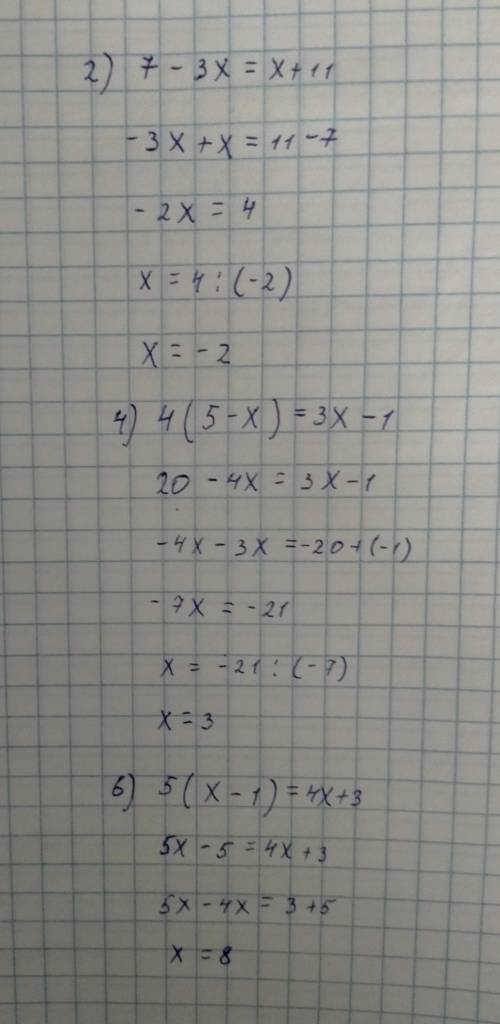 2) 7 - 3x = x + 11
-3x + x = 11 - 7
-2x = 4
x = 4 : (-2)
x = -2
4) 4(5 - x) = 3x - 1
20 - 4x = 3x - 1
-4x - 3x = -20 + (-1)
-7x = -21
x = -21 : (-7)
x = 3
6) 5(x - 1) = 4x + 3
5x - 5 = 4x + 3
5x - 4x = 3 + 5
x = 8